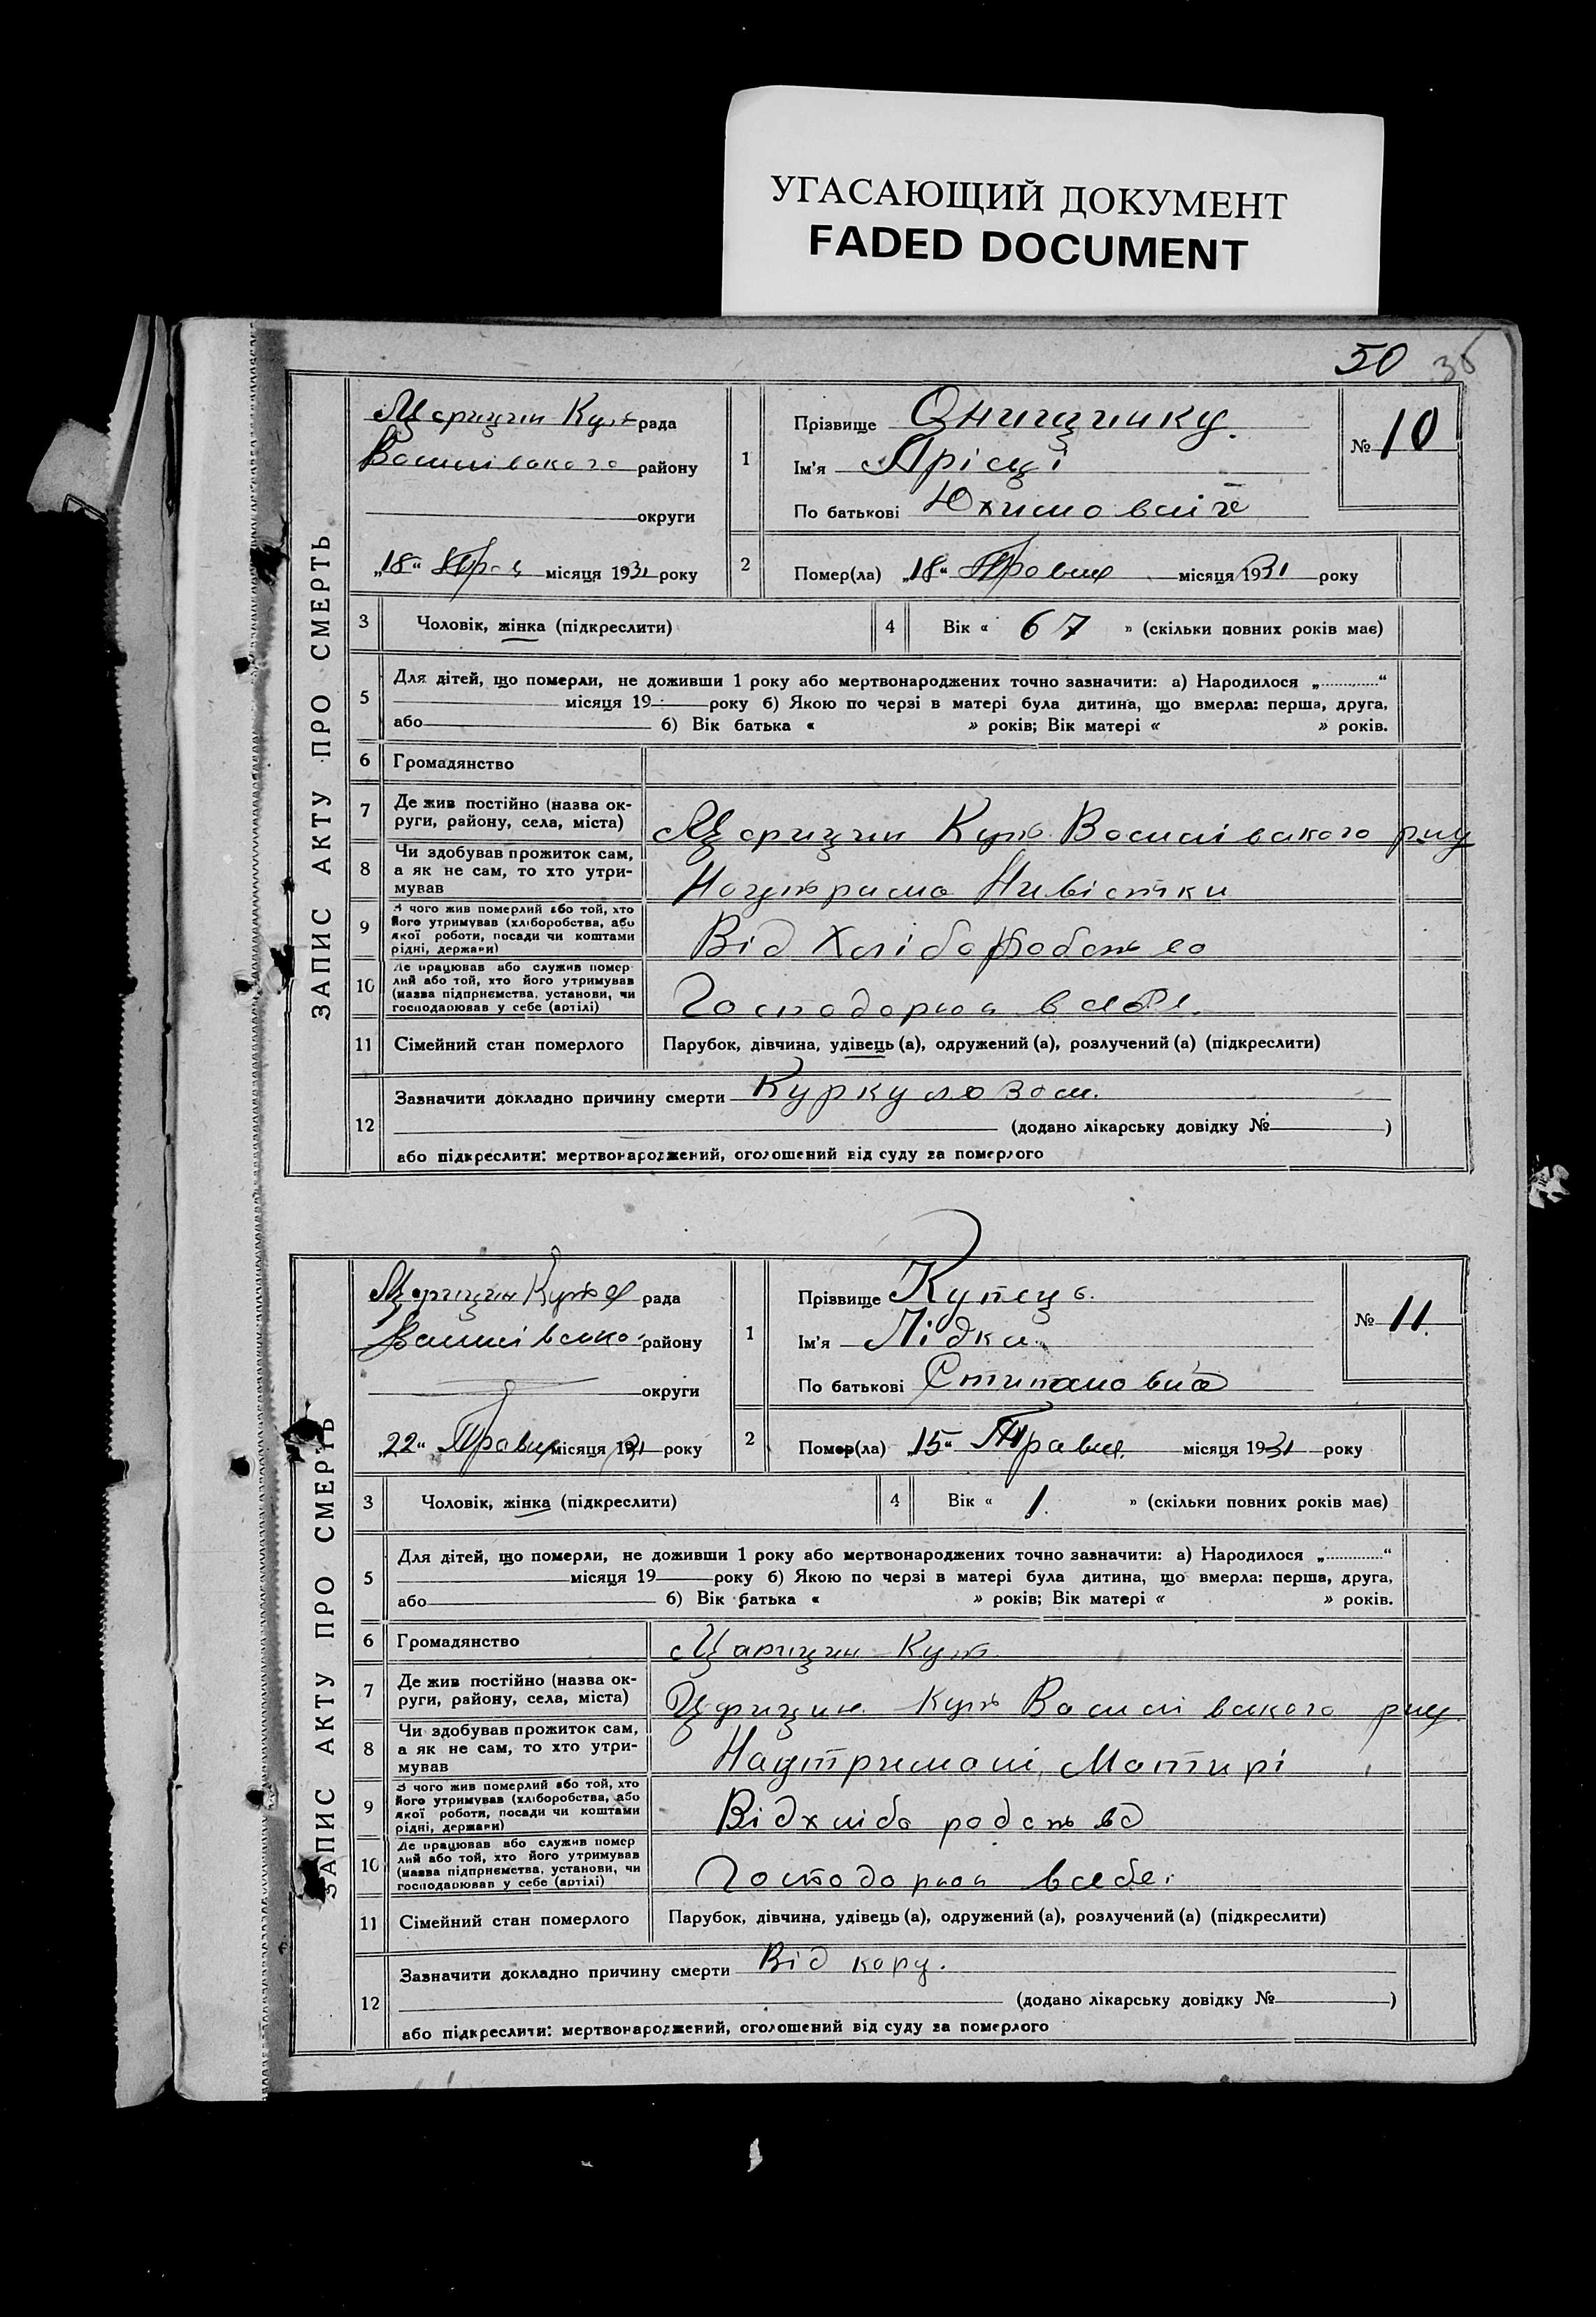 УГАСАЮЩИЙ ДОКУМЕНТ
FADED DOCUMENT
50 35
ЗАПИС АКТУ ПРО СМЕРТЬ
Царицин Кут рада
Василівського району
округи
„18“ Трав місяця 1931 року
1
Прізвище Онищинку.
Ім'я Прісці
По батькові Юхимовній
№ 10
2
Помер(ла) „18“ Травня місяця 1931 року
3 Чоловік, жінка (підкреслити)
4 Вік « 67 » (скільки повних років має)
5
Для дітей, що померли, не доживши 1 року або мертвонароджених точно зазначити: а) Народилося „ “
місяця 19 року б) Якою по черзі в матері була дитина, що вмерла: перша, друга,
або б) Вік батька « » років; Вік матері « » років.
6 Громадянство
7
Де жив постійно (назва ок-
руги, району, села, міста)
Царицин Куть Василівського р-ну
8
Чи здобував прожиток сам,
а як не сам, то хто утри-
мував
Ноутърима Нивістки
9
З чого жив померлий або той, хто
його утримував (хліборобства, або
якої роботи, посади чи коштами
рідні, держави)
Від Хліборобства
10
Де працював або служив помер
лий або той, хто його утримував
(назва підприємства, установи, чи
господарював у себе (артілі)
Господорюа в себе.
11 Сімейний стан померлого
Парубок, дівчина, удівець (а), одружений (а), розлучений (а) (підкреслити)
12
Зазначити докладно причину смерти Куркульозом.
(додано лікарську довідку № )
або підкреслити: мертвонароджений, оголошений від суду за померлого
ЗАПИС АКТУ ПРО СМЕРТЬ
Царицин Кутья рада
Василівсько району
округи
„22“ Травня місяця 1931 року
1
Прізвище Купець.
Ім'я Лідка
По батькові Стипановна
№ 11.
2
Помер(ла) „15“ Травня. місяця 1931 року
3 Чоловік, жінка (підкреслити)
4 Вік « 1. » (скільки повних років має)
5
Для дітей, що померли, не доживши 1 року або мертвонароджених точно зазначити: а) Народилося „ “
місяця 19 року б) Якою по черзі в матері була дитина, що вмерла: перша, друга,
або б) Вік батька « » років; Вік матері « » років.
6 Громадянство
Царицин Куть
7
Де жив постійно (назва ок-
руги, району, села, міста)
Царицин Куть Василівського р-ну
8
Чи здобував прожиток сам,
а як не сам, то хто утри-
мував
Наутримані Матирі
9
З чого жив померлий або той, хто
його утримував (хліборобства, або
якої роботи, посади чи коштами
рідні, держави)
Відхліборобство
10
Де працював або служив помер
лий або той, хто його утримував
(назва підприємства, установи, чи
господарював у себе (артілі)
Господорюа всебе.
11 Сімейний стан померлого
Парубок, дівчина, удівець (а), одружений (а), розлучений (а) (підкреслити)
12
Зазначити докладно причину смерти Від кору.
(додано лікарську довідку № )
або підкреслити: мертвонароджений, оголошений від суду за померлого